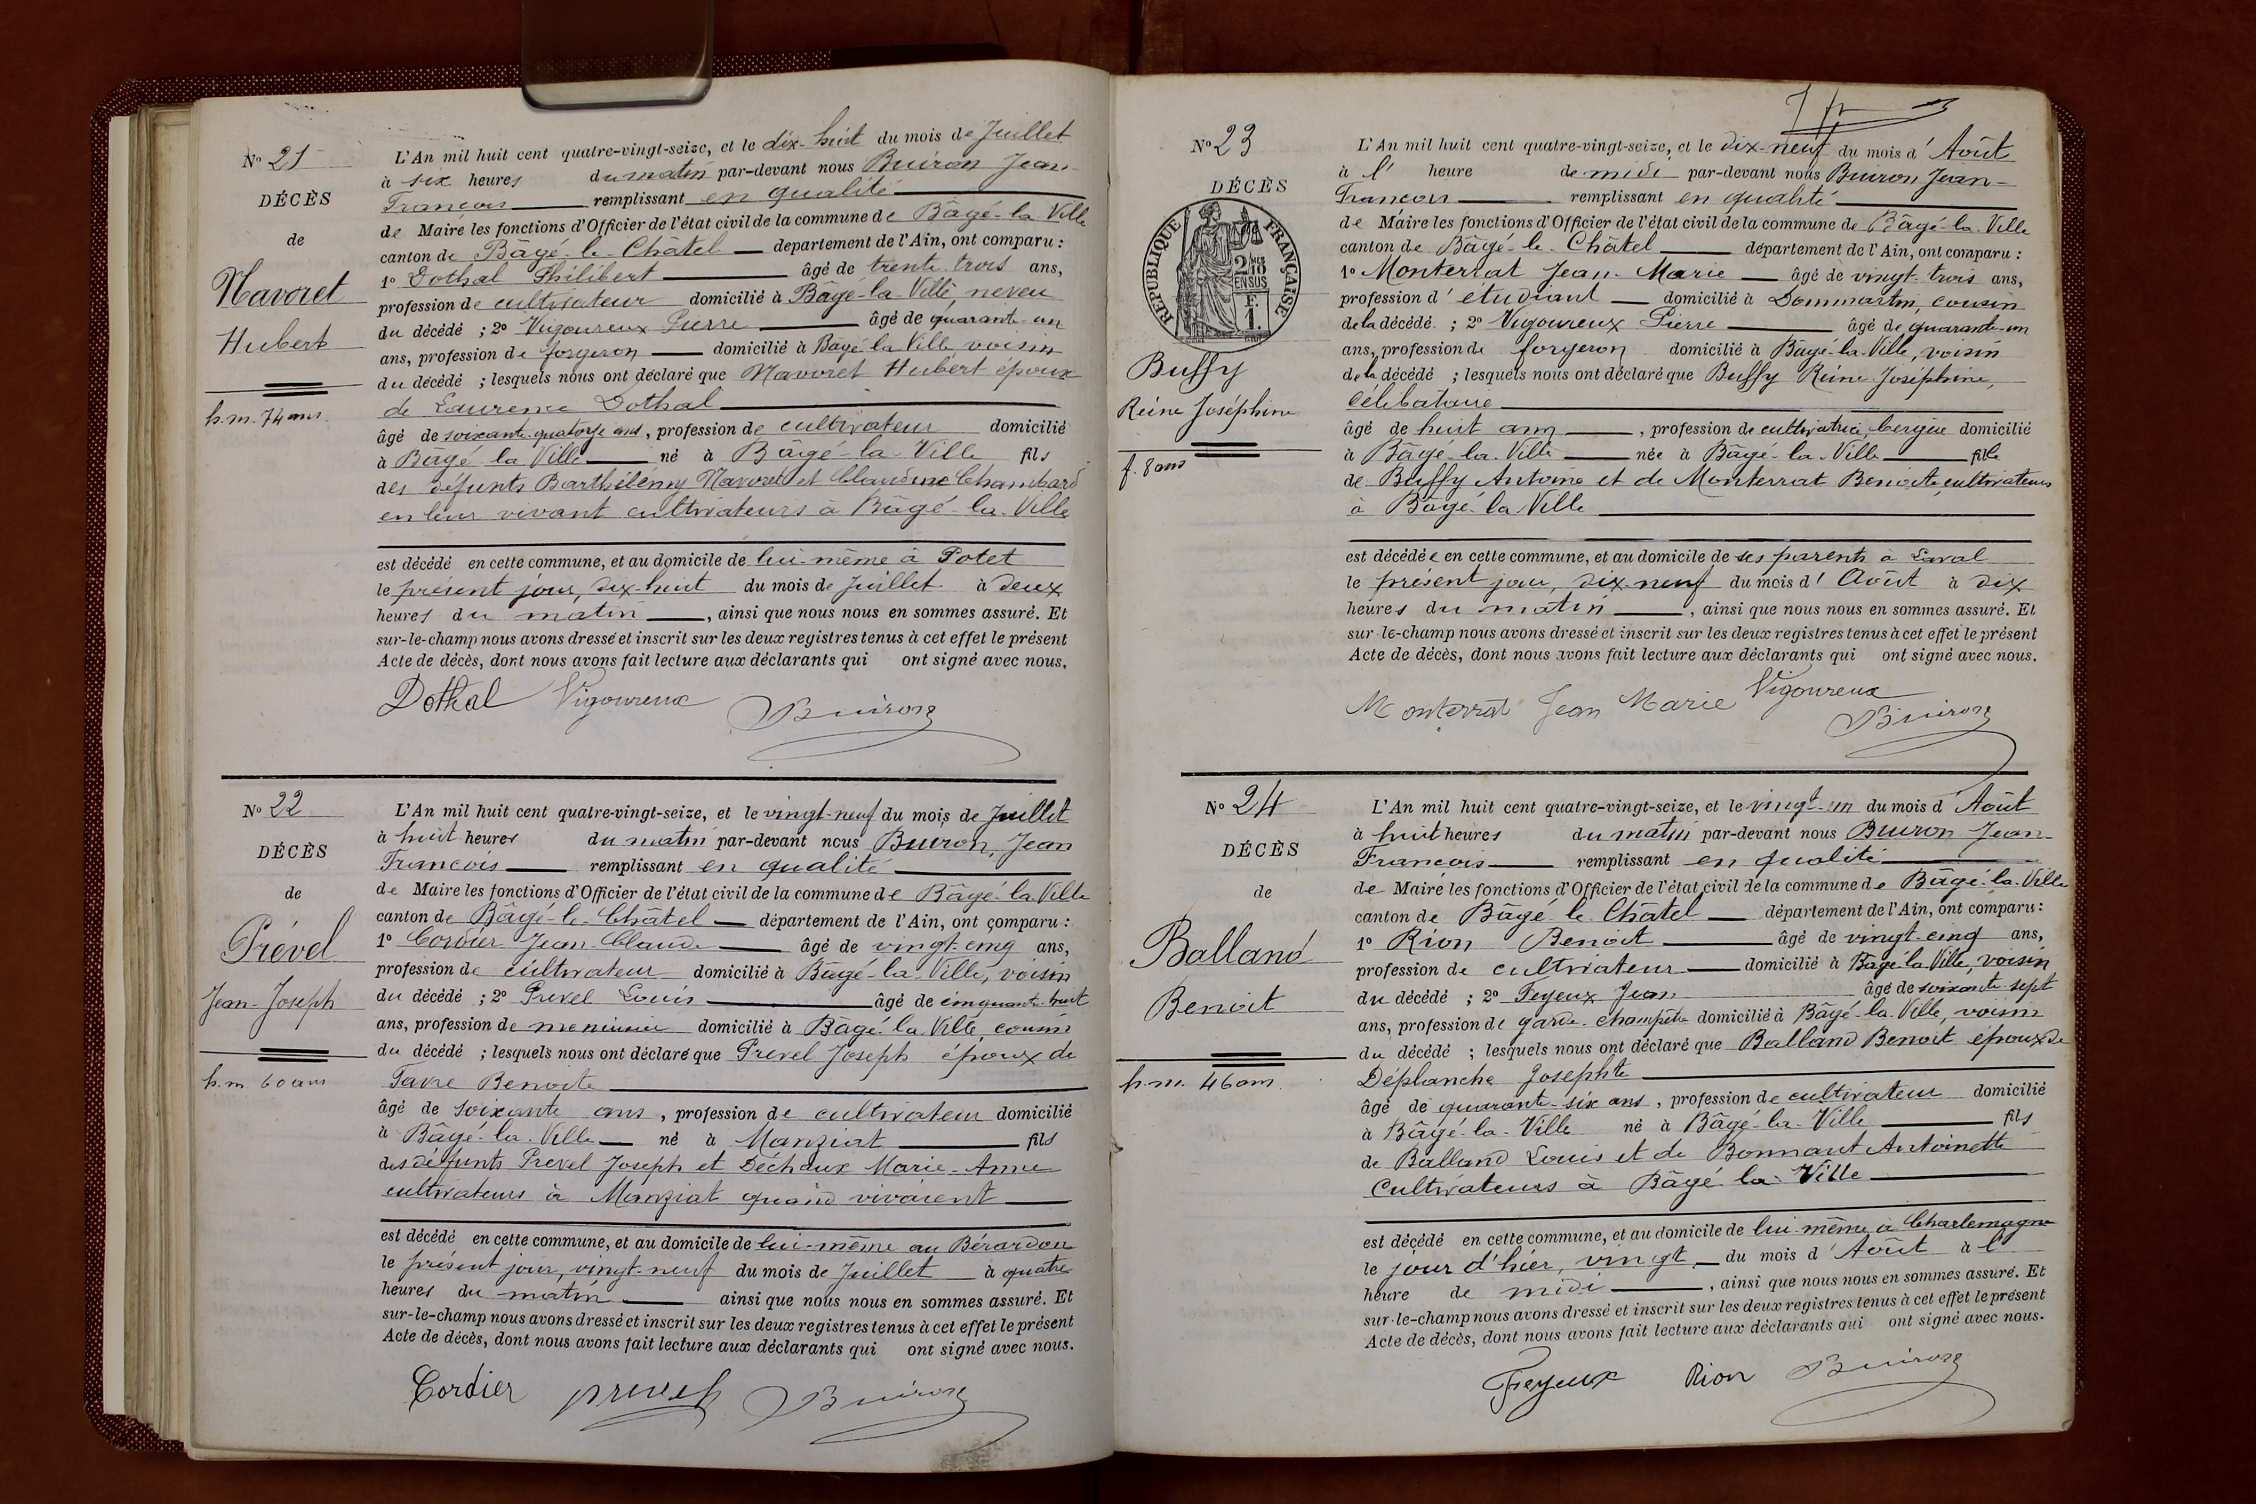 Nº 21
DÉCÈS
de
Navoret
Hubert
h. m. 74 ans.
L'An mil huit cent quatre-vingt-seize, et le dix-huit du mois de Juillet
à six heures du matin par-devant nous Buiron Jean
François remplissant en qualité
de Maire les fonctions d'Officier de l'état civil de la commune de Bâgé-la-Ville
canton de Bâgé-le-Châtel département de l'Ain, ont comparu :
1º Dothal Philibert âgé de trente-trois ans,
profession de cultivateur domicilié à Bâgé-la-Ville, neveu
du décédé ; 2º Vigoureux Pierre âgé de quarante-un
ans, profession de forgeron domicilié à Bâgé-la-Ville voisin
du décédé ; lesquels nous ont déclaré que Navoret Hubert époux
de Laurence Dothal
âgé de soixante-quatorze ans, profession de cultivateur domicilié
à Bâgé la Ville né à Bâgé-la-Ville fils
des défunts Barthélémy Navoret et Claudine Chambard
en leur vivant cultivateurs à Bâgé-la-Ville
est décédé en cette commune, et au domicile de lui-même à Potet
le présent jour, dix-huit du mois de Juillet à deux
heures du matin, ainsi que nous nous en sommes assuré. Et
sur-le-champ nous avons dressé et inscrit sur les deux registres tenus à cet effet le présent
Acte de décès, dont nous avons fait lecture aux déclarants qui ont signé avec nous.
Dothal Vigoureux Buiron
Nº 22
DÉCÈS
de
Prével
Jean-Joseph
h. m. 60 ans
L'An mil huit cent quatre-vingt-seize, et le vingt-neuf du mois de Juillet
à huit heures du matin par-devant nous Buiron, Jean
François remplissant en qualité
de Maire les fonctions d'Officier de l'état civil de la commune de Bâgé-la-Ville
canton de Bâgé-le-Châtel département de l'Ain, ont comparu :
1º Cordier Jean Claude âgé de vingt-cinq ans,
profession de cultivateur domicilié à Bâgé-la-Ville, voisin
du décédé ; 2º Prevel Louis âgé de cinquante-huit
ans, profession de menuisier domicilié à Bâgé la Ville, cousin
du décédé ; lesquels nous ont déclaré que Prevel Joseph époux de
Favre Benoite
âgé de soixante ans, profession de cultivateur domicilié
à Bâgé-la-Ville né à Manziat fils
des défunts Prevel Joseph et Déchaux Marie-Anne
cultivateurs à Manziat quand vivaient
est décédé en cette commune, et au domicile de lui-même au Bérardon
le présent jour, vingt-neuf du mois de Juillet à quatre
heures du matin ainsi que nous nous en sommes assuré. Et
sur-le-champ nous avons dressé et inscrit sur les deux registres tenus à cet effet le présent
Acte de décès, dont nous avons fait lecture aux déclarants qui ont signé avec nous.
Cordier prevel Buiron
Nº 23
DÉCÈS
RÉPUBLIQUE FRANÇAISE
2/10es
EN SUS
F.
1.
Buffy
Reine Joséphine
f. 8 ans
L'An mil huit cent quatre-vingt-seize, et le dix-neuf du mois d'Août
à l' heure de midi par-devant nous Buiron Jean-
François remplissant en qualité
de Maire les fonctions d'Officier de l'état civil de la commune de Bâgé-la-Ville
canton de Bâgé-le-Châtel département de l'Ain, ont comparu :
1º Monterrat Jean-Marie âgé de vingt-trois ans,
profession d'étudiant domicilié à Dommartin, cousin
de la décédé ; 2º Vigoureux Pierre âgé de quarante-un
ans, profession de forgeron domicilié à Bâgé-la-Ville, voisin
de la décédé ; lesquels nous ont déclaré que Buffy Reine Joséphine,
célibataire
âgé de huit ans, profession de cultivatrice, bergère domicilié
à Bâgé-la-Ville née à Bâgé-la-Ville fille
de Buffy Antoine et de Monterrat Benoite, cultivateurs
à Bâgé-la-Ville
est décédée en cette commune, et au domicile de ses parents à Laval
le présent jour, dix-neuf du mois d'Août à dix
heures du matin, ainsi que nous nous en sommes assuré. Et
sur-le-champ nous avons dressé et inscrit sur les deux registres tenus à cet effet le présent
Acte de décès, dont nous avons fait lecture aux déclarants qui ont signé avec nous.
Monterrat Jean Marie Vigoureux
Buiron
Nº 24
DÉCÈS
de
Balland
Benoit
h. m. 46 ans.
L'An mil huit cent quatre-vingt-seize, et le vingt-un du mois d'Août
à huit heures du matin par-devant nous Buiron Jean-
François remplissant en qualité
de Maire les fonctions d'Officier de l'état civil de la commune de Bâgé-la-Ville
canton de Bâgé-le-Châtel département de l'Ain, ont comparu :
1º Rion Benoit âgé de vingt-cinq ans,
profession de cultivateur domicilié à Bâgé-la-Ville, voisin
du décédé ; 2º Feyeux Jean âgé de soixante-sept
ans, profession de garde-champêtre domicilié à Bâgé-la-Ville, voisin
du décédé ; lesquels nous ont déclaré que Balland Benoit époux de
Déplanche Josephte
âgé de quarante-six ans, profession de cultivateur domicilié
à Bâgé-la-Ville né à Bâgé-la-Ville fils
de Balland Louis et de Bonnant Antoinette
cultivateurs à Bâgé la Ville
est décédé en cette commune, et au domicile de lui-même à Charlemagne
le jour d'hier, vingt du mois d'Août à l'
heure de midi, ainsi que nous nous en sommes assuré. Et
sur-le-champ nous avons dressé et inscrit sur les deux registres tenus à cet effet le présent
Acte de décès, dont nous avons fait lecture aux déclarants qui ont signé avec nous.
Feyeux Rion Buiron